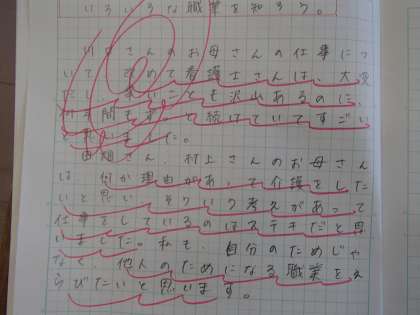 いろいろな職業を知ろう。
さんのお母さんの仕事につ
いて、改めて看護士さんは、大変
だし、辛いことも沢山あるのに、
何年間もずっと続けていてすごい
と思いました。
田畑さん、村上さんのお母さん
は、何か理由があって介護をした
いと思い、そういう考えがあって
仕事をしているのはステキだと思
いました。私も、自分のためじゃ
なく、他人のためになる職業をえ
らびたいと思います。